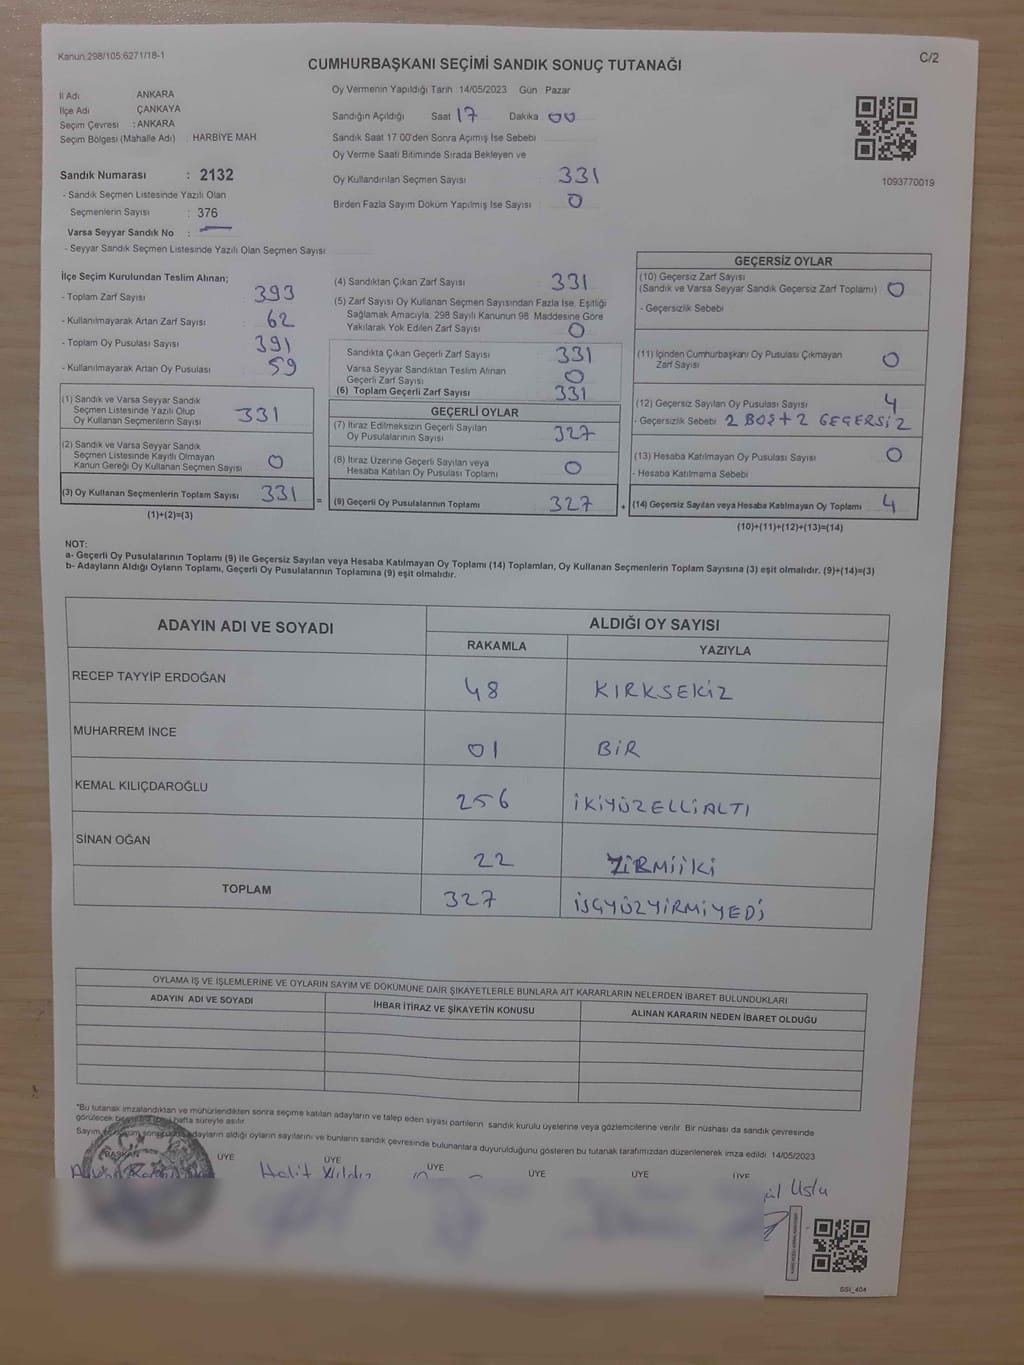 Kanun.298/105.6271/18-1
C/2
CUMHURBAŞKANI SEÇİMİ SANDIK SONUÇ TUTANAĞI
İl Adı ANKARA
İlçe Adı ÇANKAYA
Seçim Çevresi : ANKARA
Seçim Bölgesi (Mahalle Adı) : HARBİYE MAH
Sandık Numarası : 2132
- Sandık Seçmen Listesinde Yazılı Olan
Seçmenlerin Sayısı : 376
Varsa Seyyar Sandık No :
- Seyyar Sandık Seçmen Listesinde Yazılı Olan Seçmen Sayısı
Oy Vermenin Yapıldığı Tarih 14/05/2023 Gün Pazar
Sandığın Açıldığı Saat 17 Dakika 00
Sandık Saat 17 00'den Sonra Açımış İse Sebebi
Oy Verme Saati Bitiminde Sırada Bekleyen ve
Oy Kullandırılan Seçmen Sayısı 331
Birden Fazla Sayım Döküm Yapılmış İse Sayısı 0
1093770019
İlçe Seçim Kurulundan Teslim Alınan;
- Toplam Zarf Sayısı 393
- Kullanılmayarak Artan Zarf Sayısı 62
- Toplam Oy Pusulası Sayısı 391
- Kullanılmayarak Artan Oy Pusulası 59
(1) Sandık ve Varsa Seyyar Sandık
Seçmen Listesinde Yazılı Olup
Oy Kullanan Seçmenlerin Sayısı 331
(2) Sandık ve Varsa Seyyar Sandık
Seçmen Listesinde Kayıtlı Olmayan
Kanun Gereği Oy Kullanan Seçmen Sayısı 0
(3) Oy Kullanan Seçmenlerin Toplam Sayısı 331 =
(1)+(2)=(3)
(4) Sandıktan Çıkan Zarf Sayısı 331
(5) Zarf Sayısı Oy Kullanan Seçmen Sayısından Fazla İse, Eşitliği
Sağlamak Amacıyla, 298 Sayılı Kanunun 98. Maddesine Göre
Yakılarak Yok Edilen Zarf Sayısı 0
Sandıkta Çıkan Geçerli Zarf Sayısı 331
Varsa Seyyar Sandıktan Teslim Alınan
Geçerli Zarf Sayısı 0
(6) Toplam Geçerli Zarf Sayısı 331
GEÇERLİ OYLAR
(7) İtiraz Edilmeksizin Geçerli Sayılan
Oy Pusulalarının Sayısı 327
(8) İtiraz Üzerine Geçerli Sayılan veya
Hesaba Katılan Oy Pusulası Toplamı 0
(9) Geçerli Oy Pusulalarının Toplamı 327 +
GEÇERSİZ OYLAR
(10) Geçersiz Zarf Sayısı
(Sandık ve Varsa Seyyar Sandık Geçersiz Zarf Toplamı) 0
- Geçersizlik Sebebi
(11) İçinden Cumhurbaşkanı Oy Pusulası Çıkmayan
Zarf Sayısı 0
(12) Geçersiz Sayılan Oy Pusulası Sayısı 4
- Geçersizlik Sebebi 2 BOŞ + 2 GEÇERSİZ
(13) Hesaba Katılmayan Oy Pusulası Sayısı 0
- Hesaba Katılmama Sebebi
(14) Geçersiz Sayılan veya Hesaba Katılmayan Oy Toplamı 4
(10)+(11)+(12)+(13)=(14)
NOT:
a- Geçerli Oy Pusulalarının Toplamı (9) ile Geçersiz Sayılan veya Hesaba Katılmayan Oy Toplamı (14) Toplamları, Oy Kullanan Seçmenlerin Toplam Sayısına (3) eşit olmalıdır. (9)+(14)=(3)
b- Adayların Aldığı Oyların Toplamı, Geçerli Oy Pusulalarının Toplamına (9) eşit olmalıdır.
ADAYIN ADI VE SOYADI ALDIĞI OY SAYISI
RAKAMLA YAZIYLA
RECEP TAYYİP ERDOĞAN 48 KIRKSEKİZ
MUHARREM İNCE 01 BİR
KEMAL KILIÇDAROĞLU 256 İKİYÜZELLİALTI
SİNAN OĞAN 22 YİRMİİKİ
TOPLAM 327 ÜÇYÜZYİRMİYEDİ
OYLAMA İŞ VE İŞLEMLERİNE VE OYLARIN SAYIM VE DÖKÜMÜNE DAİR ŞİKAYETLERLE BUNLARA AİT KARARLARIN NELERDEN İBARET BULUNDUKLARI
ADAYIN ADI VE SOYADI İHBAR İTİRAZ VE ŞİKAYETİN KONUSU ALINAN KARARIN NEDEN İBARET OLDUĞU
*Bu tutanak imzalandıktan ve mühürlendikten sonra seçime katılan adayların ve talep eden siyasi partilerin sandık kurulu üyelerine veya gözlemcilerine verilir. Bir nüshası da sandık çevresinde
görülecek hafta süreyle asılır
Sayım adayların aldığı oyların sayılarını ve bunların sandık çevresinde bulunanlara duyurulduğunu gösteren bu tutanak tarafımızdan düzenlenerek imza edildi. 14/05/2023
BAŞKAN ÜYE ÜYE ÜYE ÜYE ÜYE ÜYE
Halit Yıldız Uslu
SSI_404